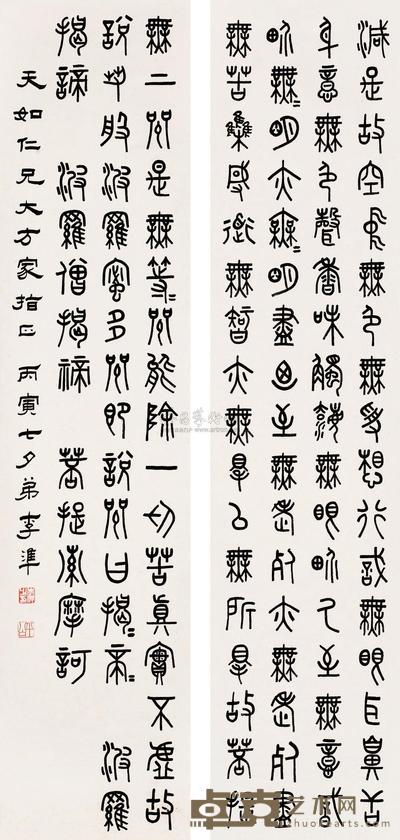 減是故空中無色無受想行識無眼耳鼻舌
身意無色聲香味觸法無眼界乃至無意識
界無=明亦無=明盡乃至無老死亦無老死盡
無苦集滅道無智亦無得以無所得故菩提
無二咒是無等=咒能除一切苦真實不虛故
說般若波羅蜜多咒即說咒曰揭=帝= 波羅
揭諦 波羅僧揭諦 菩提薩摩訶
天如仁兄大方家指正 丙寅七夕弟李準